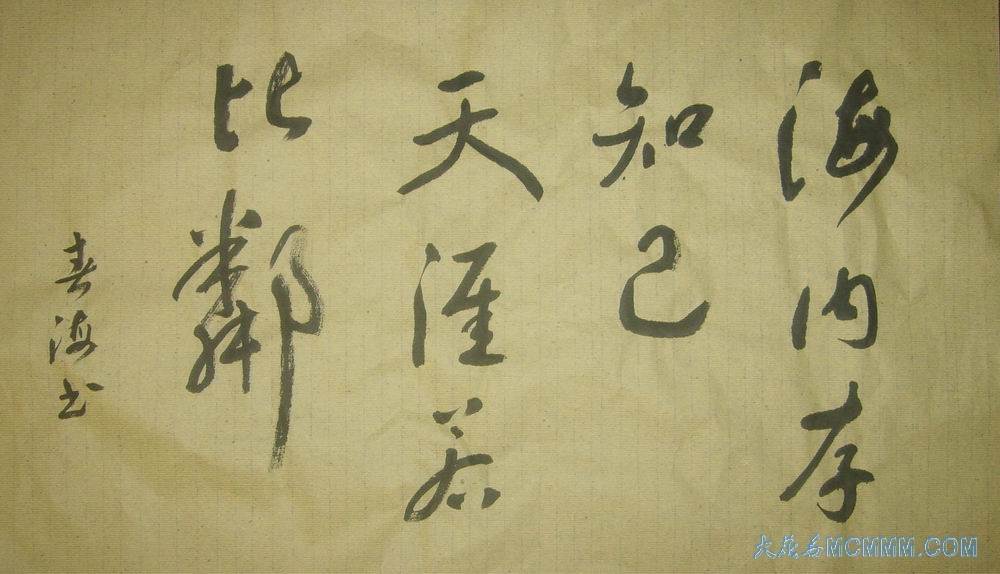 海内存
知己
天涯若
比鄰
春海书
MCMMM.COM